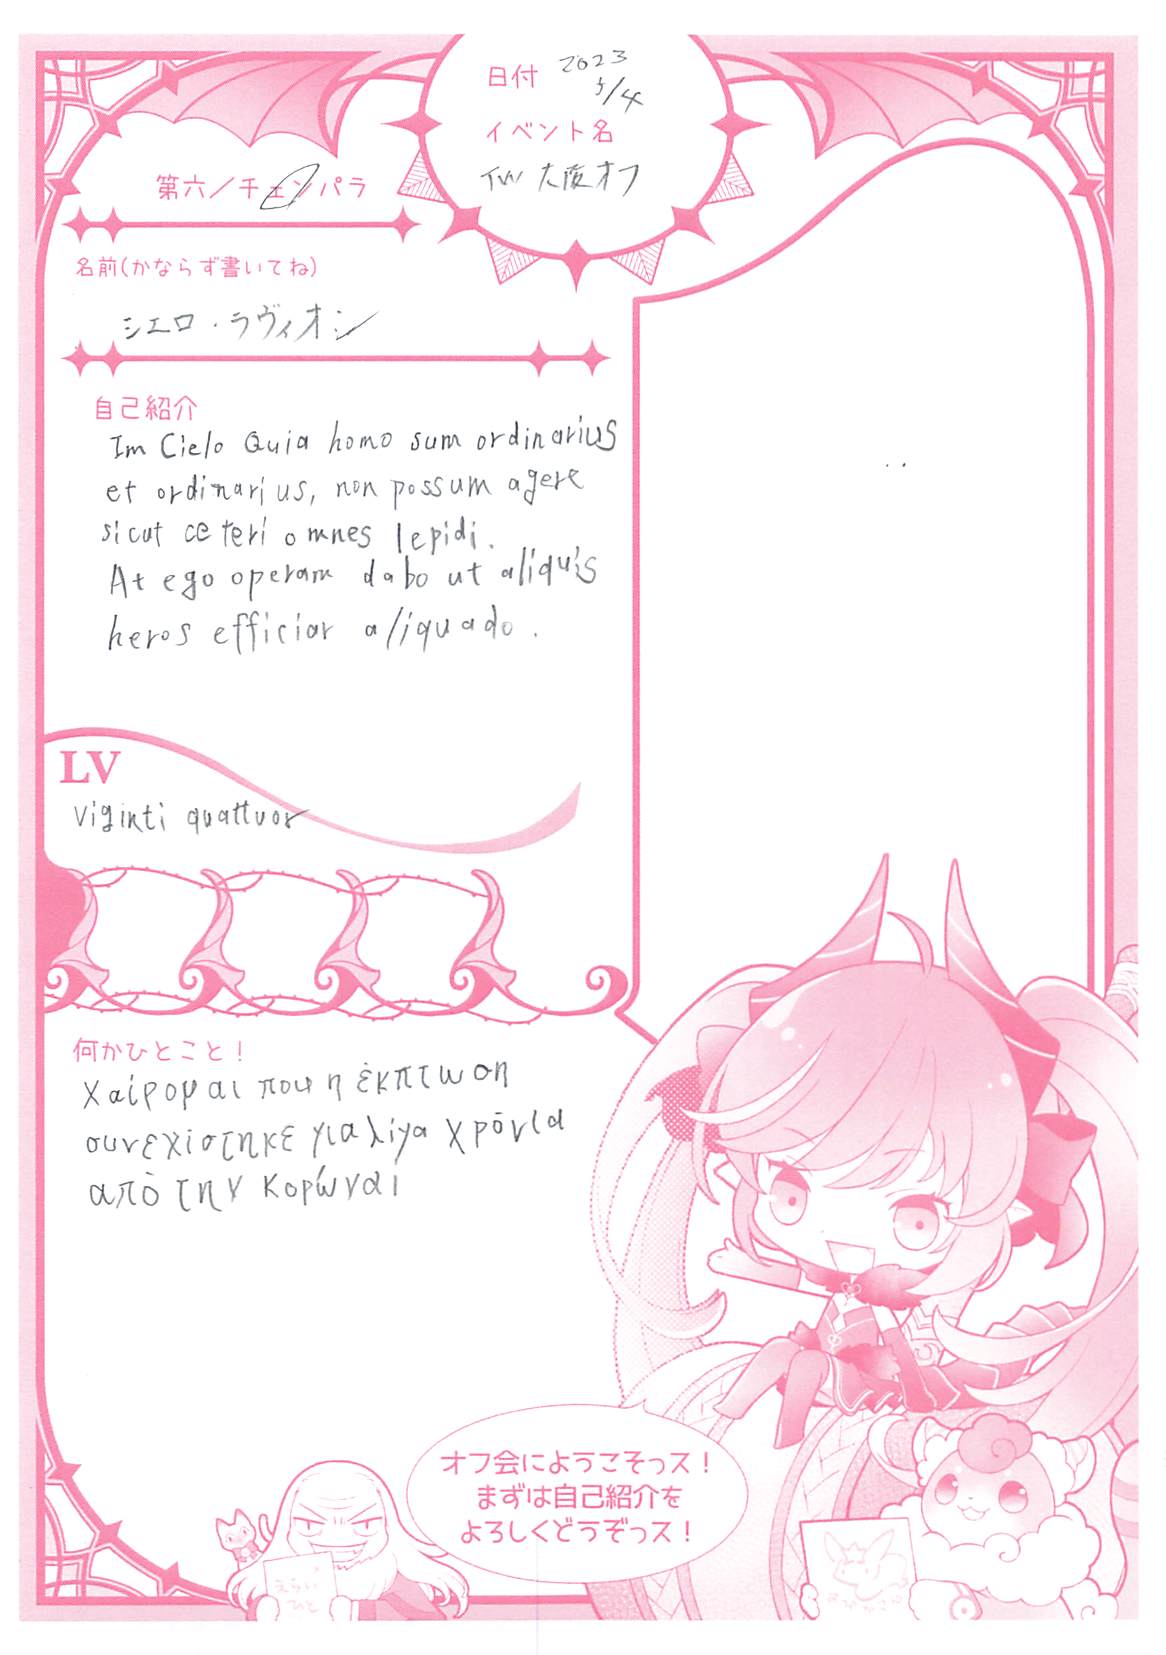 日付 2023
5/4
イベント名
TW 大阪オフ
第六/チェンパラ
名前(かならず書いてね)
シエロ・ラヴィオン
自己紹介
Im Cielo Quia homo sum ordinarius
et ordinarius, non possum agere
sicut ceteri omnes lepidi.
At ego operam dabo ut aliquis
heros efficiar aliquado.
LV
Viginti quattuor
何かひとこと!
χαίρομαι που η έκπτωση
συνεχίστηκε για λίγα χρόνια
από την κορώναι
オフ会にようこそっス!
まずは自己紹介を
よろしくどうぞっス!
えらい
ひと